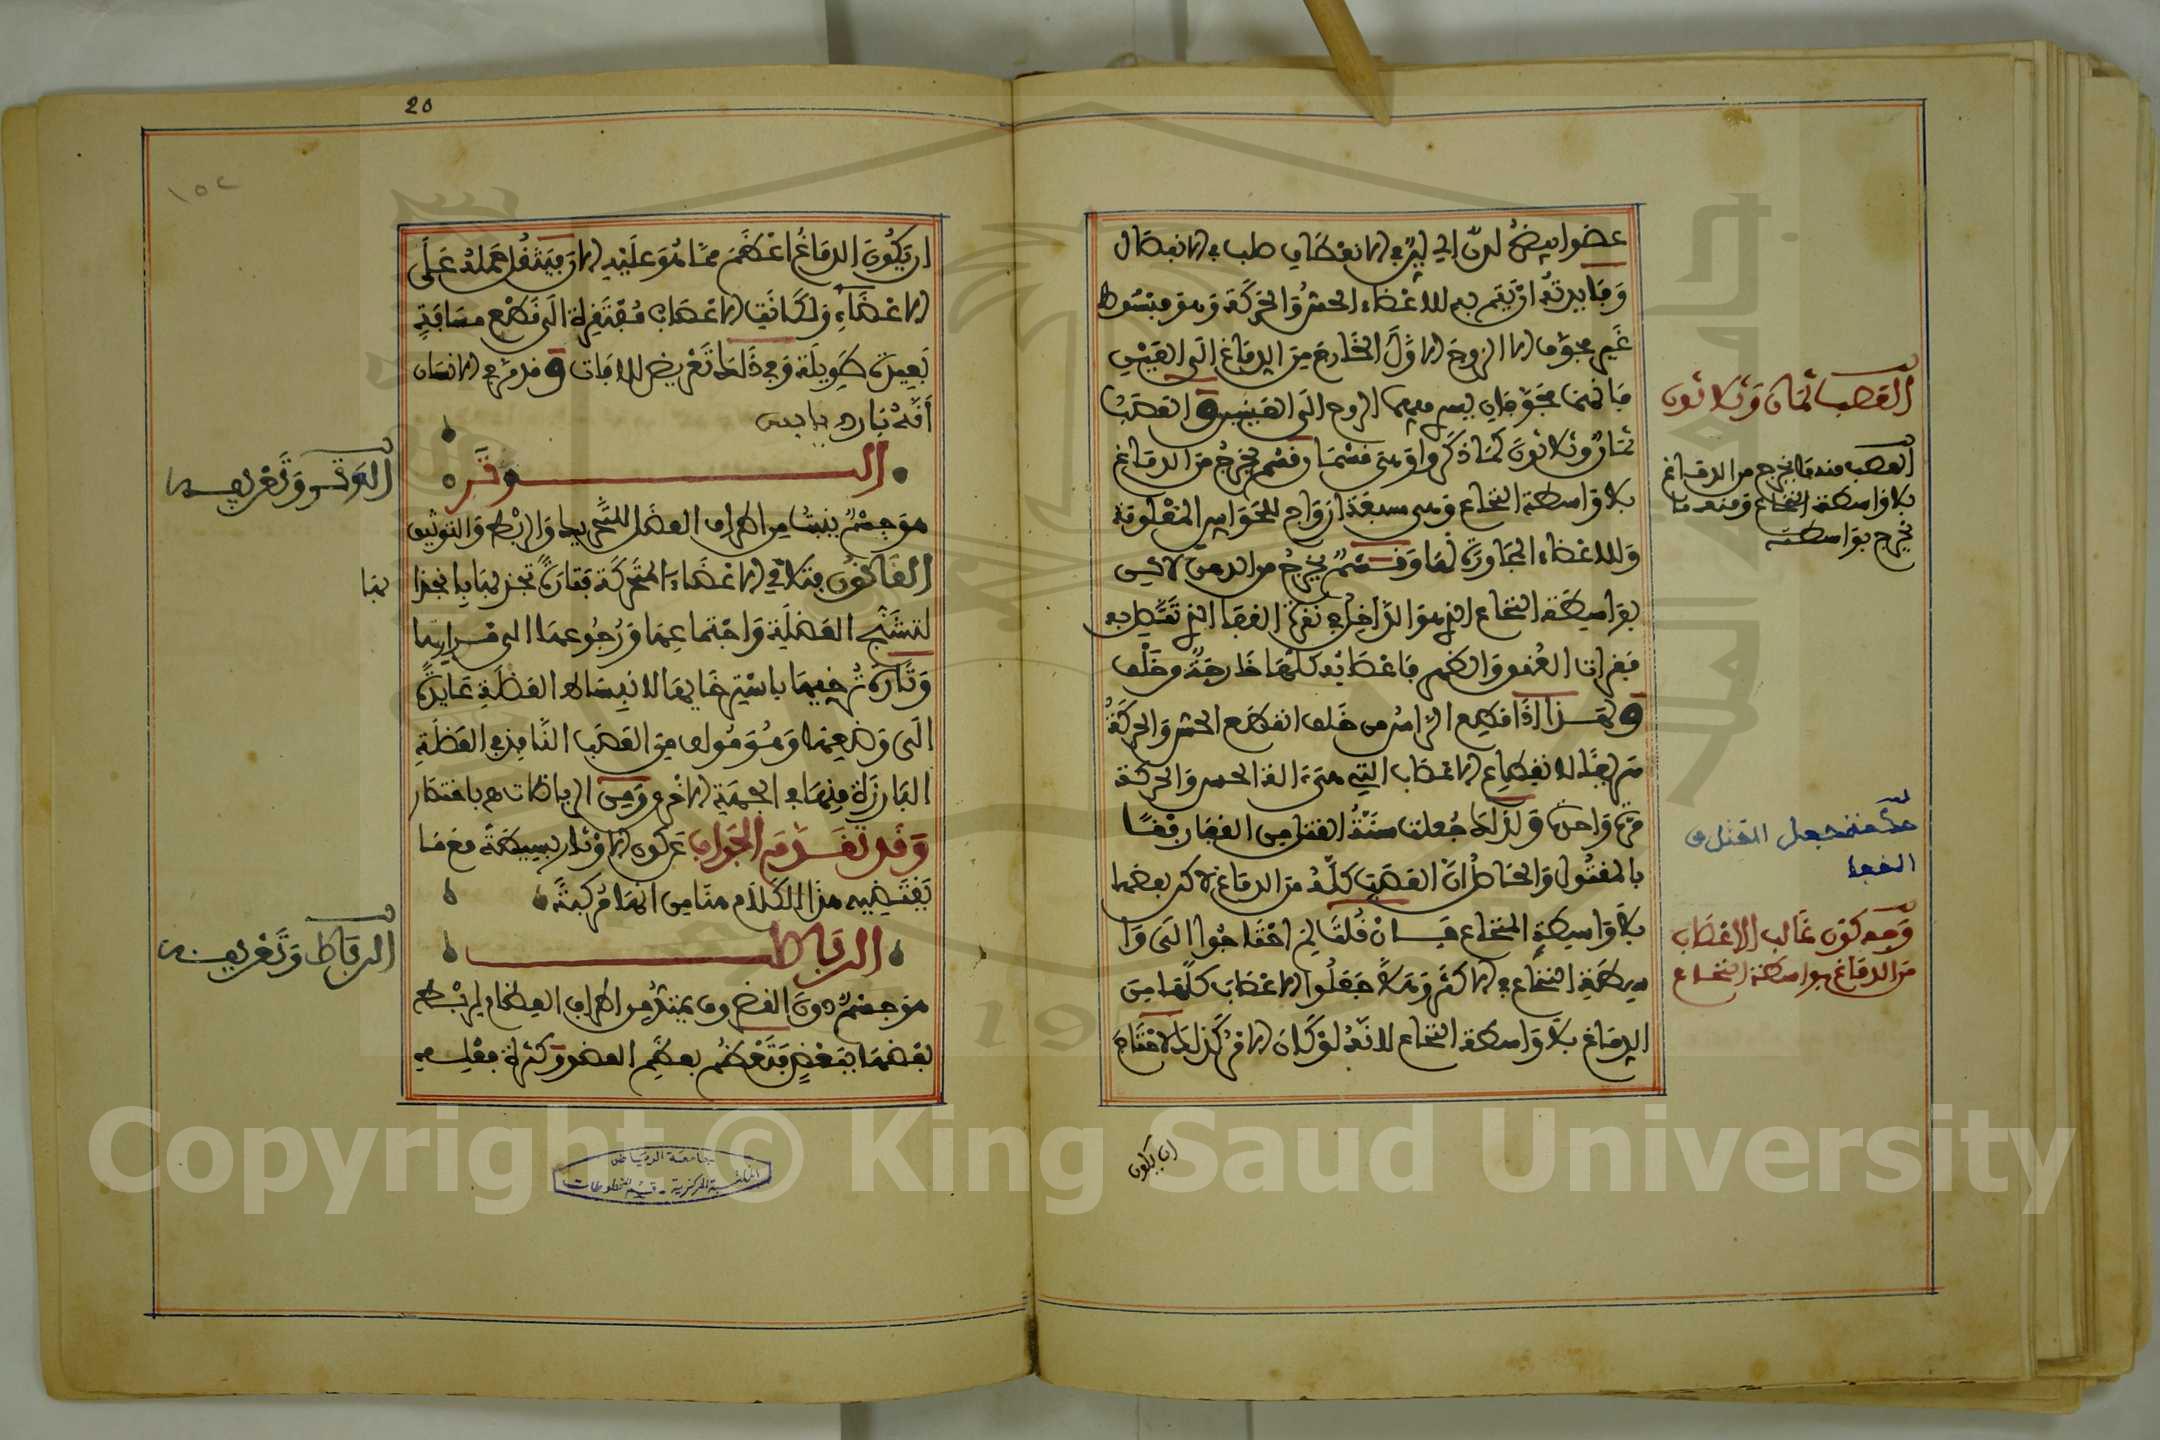 عضو ابيض لدن اي لين في الانعطاف صلب في الانفصال
وفايدته ان يتم به للاعضاء الحس والحركة وهو مبسوط
غير مجوف الا الزوج الاول الخارج من الدماغ الى العينين
فانهما مجوفان ليسرى فيهما الروح الى العينين و العصب
ثمان وثلاثون كما ذكروا وهي قسمان قسم يخرج من الدماغ
بلا واسطة النخاع وهي سبعة ازواج للحواس المعلومة
وللاعضاء المجاورة لها وقسم يخرج من الدماغ لاكن
بواسطة النخاع الذي هو الداخل في نقرة القفا الذي تتصل به
فقرات العنق والظهر فاعصابه كلها خارجة من خلف
و لهذا اذا قطع الراس من خلف انقطع الحس والحركة
سريعا لانقطاع الاعصاب التي هي آلة الحس والحركة
مرة واحدة ولذلك جعلت سنة القتل من القفا رفقا
بالمقتول والحاصل ان العصب كله من الدماغ لاكن بعضها
بلا واسطة النخاع فان قلت لم احتاجوا الى وا
سطة النخاع في الاكثر وهلا جعلوا الاعصاب كلها من
الدماغ بلا واسطة النخاع لانه لو كان الامر كذلك لاحتاج
العصب ثمان وثلاثون
العصب منه ما يخرج من الدماغ
بلا واسطة النخاع ومنه ما
يخرج بواسطته
علة سنة جعل القتل من
القفا
وجه كون غالب الاعصاب
من الدماغ بواسطة النخاع
ان يكون
20
١٥٢
ان يكون الدماغ اعظم مما هو عليه الان فيثقل حمله على
الاعضاء ولكانت الاعصاب مفتقرة الى قطع مسافة
بعيدة طويلة وفي ذلك تعريض للافات و قد مر في الانسان
انه بارد يابس
الوتر
هو جسم ينشا من اطراف العضل للتحريك والربط والتوثيق
القانون فتلاقي الاعضاء المتحركة فتارة تجذبها بانجذا
لتشنج العضلة واجتماعها ورجوعها الى ورايها
وتارة ترخيها باسترخايها لانبساط العضلة عايدة
الى وضعها وهو مولف من العصب النافذ في العضلة
البارزة منها في الجهة الاخرى ومن الرباطات
وقد تقدم الجواب عن كون الاوتار بسيطة مع ما
يقتضيه هذا الكلام هنا من انها مركبة
الرباط
هو جسم دون الغضروف يمتد من اطراف العظام لربط
بعضها ببعض فتعظم بعظم العضو وكثرة فعله
الوتر وتعريفه
بها
الرباط وتعريفه
جامعة الرياض
المكتبة المركزية - قسم المخطوطات
Copyright © King Saud University